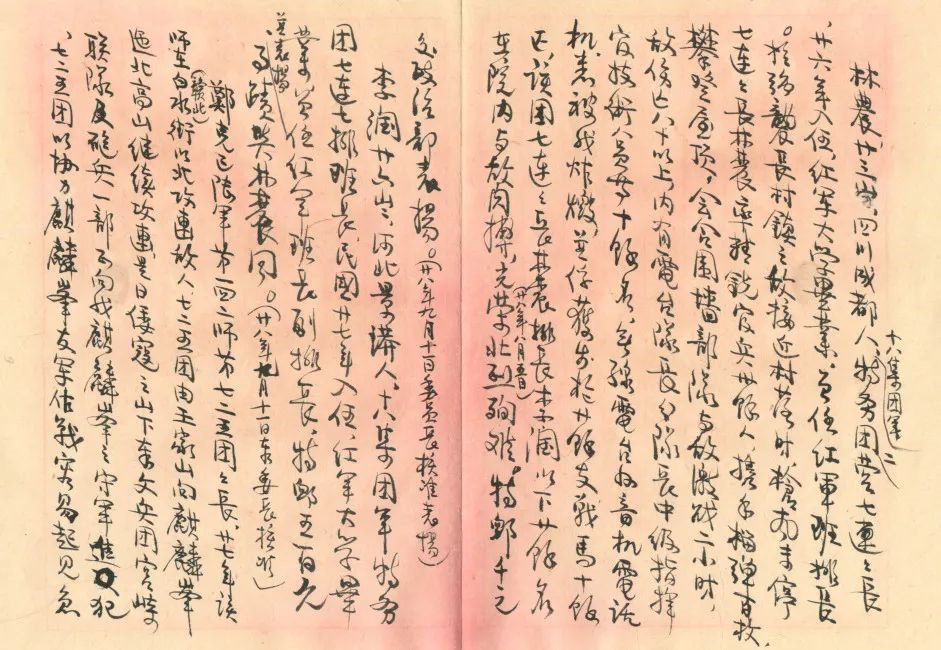 林农廿三岁、四川成都人、十八集团军特务团二营七连连长
、廿六年入伍、红军大学毕业、曾任红军班排长
。于 袭长村镇之敌、接近村落时、枪声未停
七连连长林农率轻锐官兵卅余人携手榴弹百枚、
攀登屋顶、会合围墙部队与敌激战二小时、
敌伤亡八十以上、内有电台队长、分队长、中级指挥
官、技术人员等十余名、无线电台、收音机、电话
机、悉被我炸毁、并俘获步枪廿余支、战马十余
匹、该团七连连长林农、排长李润以下廿余名
在院内与敌肉搏、壮烈殉难。特恤千元
(廿八年八月 日)
交政治部表扬。(廿八年九月十一日委员长核准表扬)
李润廿六岁、河北景 人、十八集团军特务
团七连七排排长、民国廿七年入伍、红军大学毕
业、曾任红军班长、副排长、特恤五百元
并表扬
、事迹与林农同。(廿八年九月十一日奉委长核准)
郑 陆军第一四二师第七二五团团长、廿七年该
师在白水街以北攻连敌人、七二五团由王家山向麒麟峯
(发此)
迤北高山继续攻连、是日倭寇之山下 文兵团宫崎
联队及炮兵一部、向我麒麟峯之守军进犯
、七二五团以协力麒麟峯友军作战容易起见、急